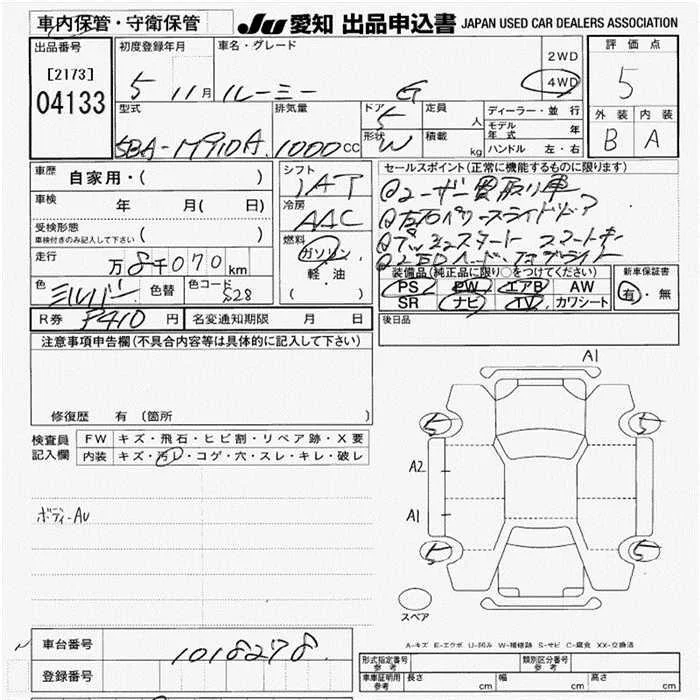 車内保管・守衛保管 JU 愛知 出品申込書 JAPAN USED CAR DEALERS ASSOCIATION
出品番号 初度登録年月 車名・グレード 2WD 評価点
[2173] 5 11月 ルーミー G 4WD 5
04133 型式 排気量 ドア 定員 ディーラー・並行 外装 内装
5 人 モデル年式 年
形状 積載 B A
5BA-M910A 1000cc W kg ハンドル 左・右
車歴 自家用・( ) シフト セールスポイント(正常に機能するものに限ります)
IAT ①ユーザー買取り車
車検 年 月( 日) 冷房 ②左右パワースライドドア
AAC ③プッシュスタート スマートキー
受検形態 車検付きのみ記入して下さい ( ) 燃料
ガソリン
走行 万8千070km 軽・油 装備品(純正品に限り○をつけてください) 新車保証書
( ) PS PW エアB AW 有・無
色 シルバー 色替 色コード S28 SR ナビ TV カワシート
R券 P410 円 名変通知期限 月 日 後日品
注意事項申告欄(不具合内容等は具体的に記入して下さい)
A1
修復歴 有 (箇所 )
5 5
検査員記入欄 FW キズ・飛石・ヒビ割・リペア跡・X要
内装 キズ・汚レ・コゲ・穴・スレ・キレ・破レ
A2
ボディ-AU A1
5 5
スペア
A-キズ E-エクボ U-凹み W-補修跡 S-サビ C-腐食 XX-交換済
車台番号 1018278
形式指定番号 参考 類別区分番号 参考
登録番号 車庫証明用 参考 長さ cm 幅 cm 高さ cm